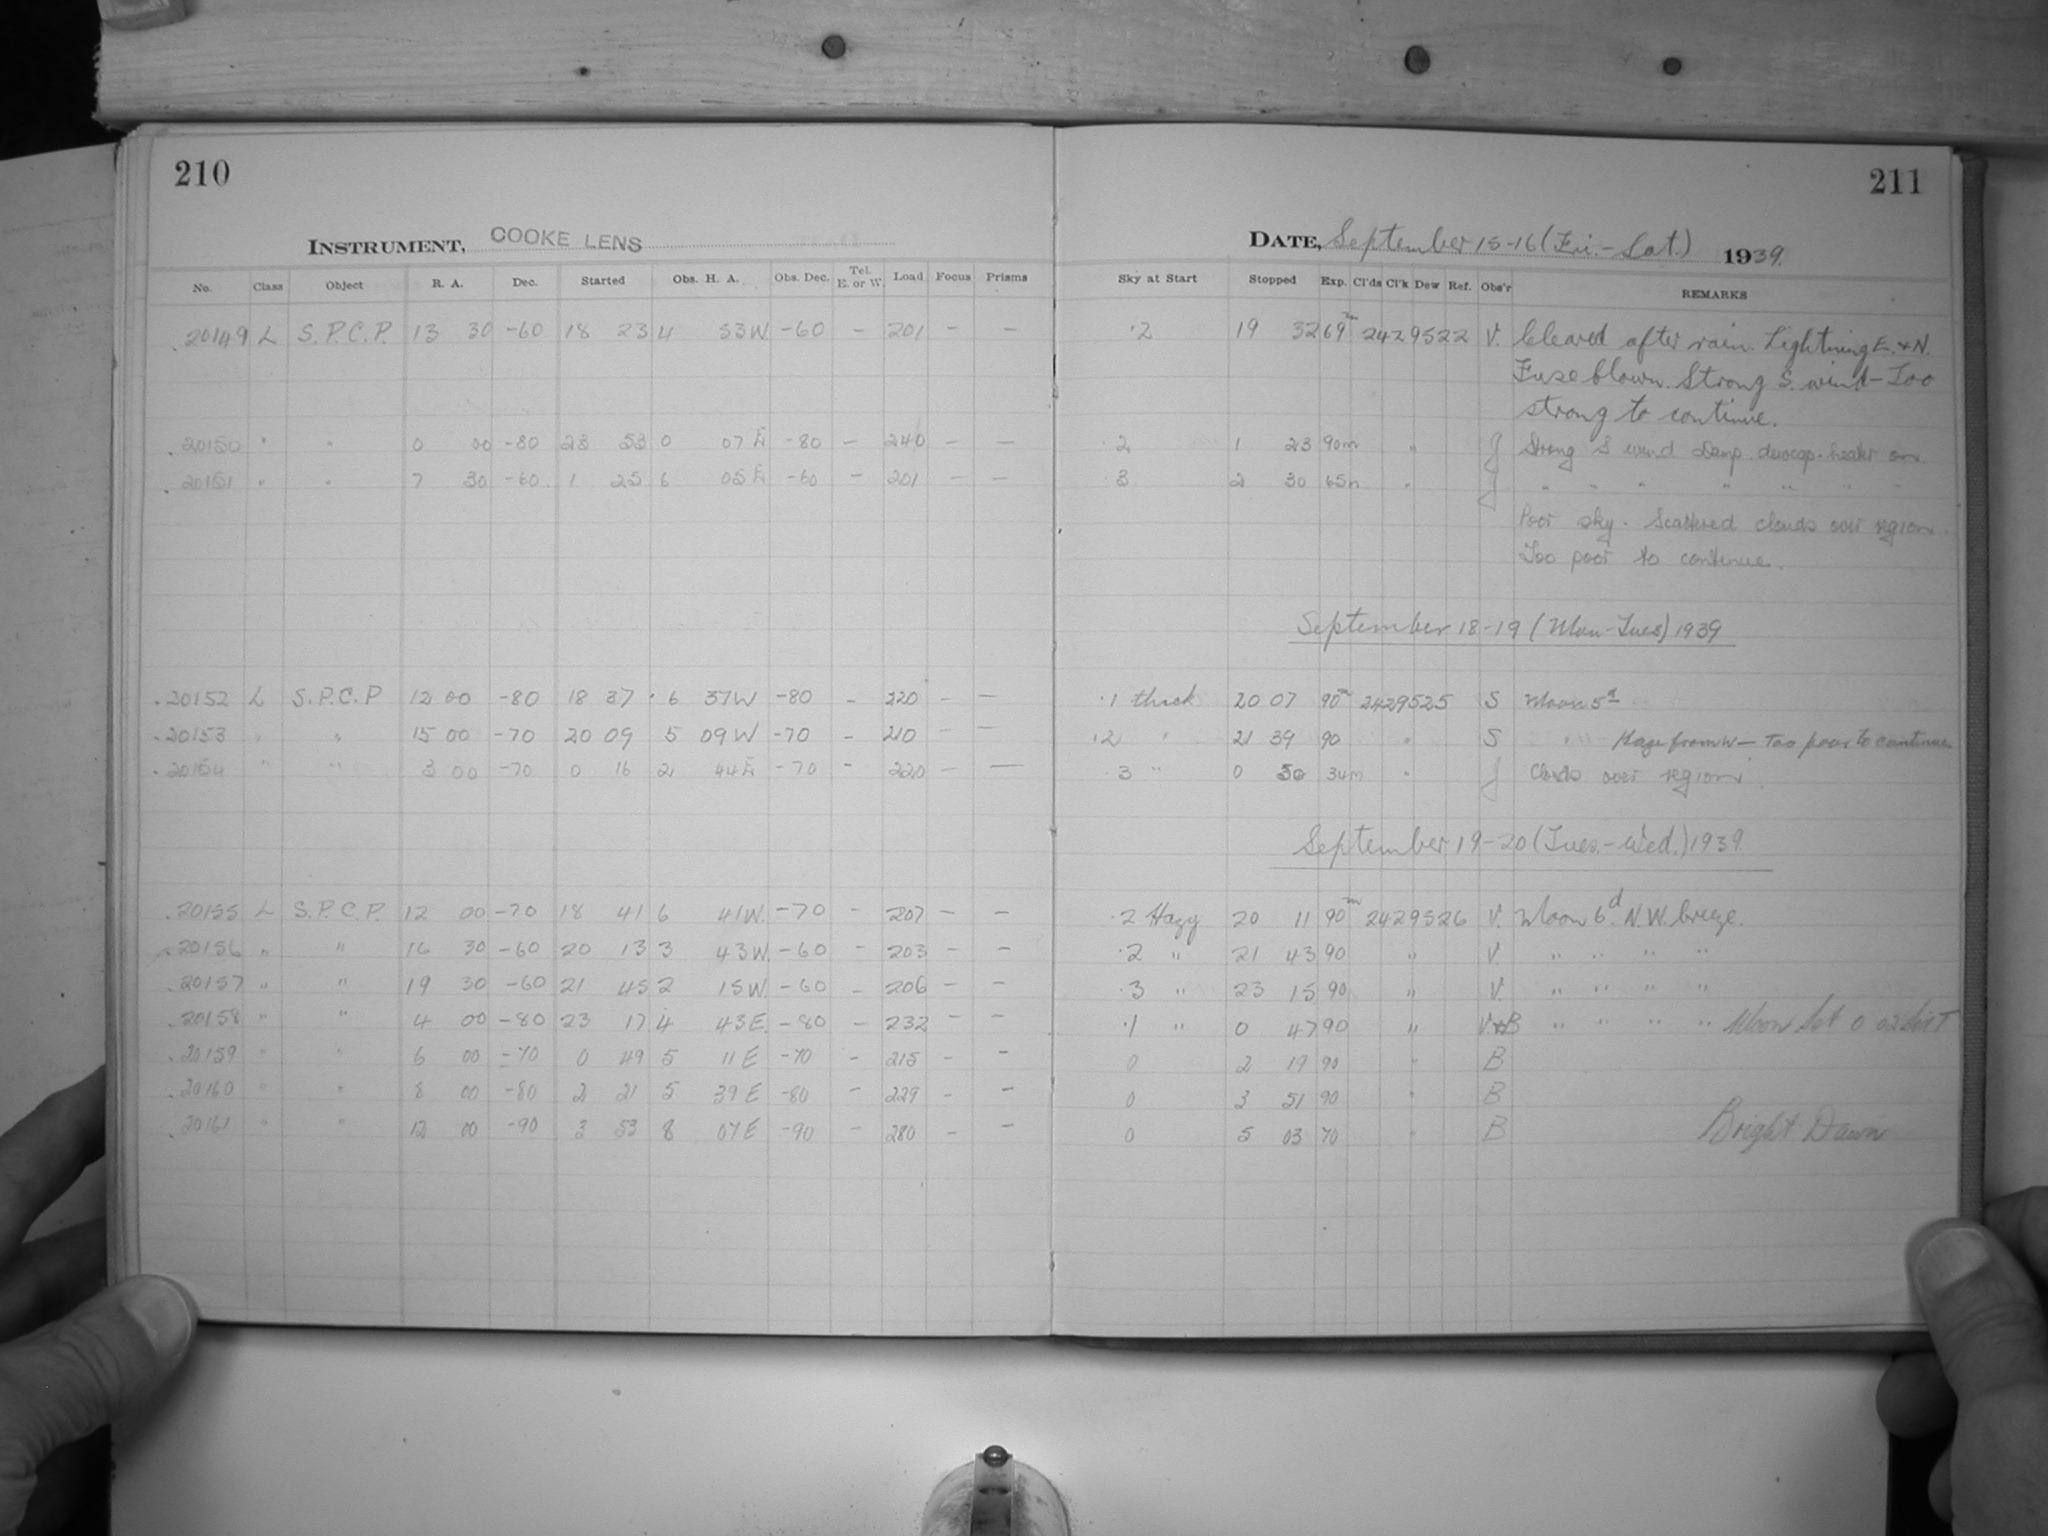 210
INSTRUMENT, COOKE LENS
No. Class Object R. A. Dec. Started Obs. H. A. Obs. Dec. Tel. E. or W. Load Focus Prisms
20149 L S.P.C.P. 13 30 -60 18 23 4 53W -60 - 201 - -
20150 " " 0 00 -80 23 53 0 07E -80 - 240 - -
20151 " " 7 30 -60 1 25 6 05E -60 - 201 - -
20152 L S.P.C.P 12 00 -80 18 37 6 37W -80 - 220 - -
20153 " " 15 00 -70 20 09 5 09W -70 - 210 - -
20154 " " 3 00 -70 0 16 2 44E -70 - 220 - -
20155 L S.P.C.P. 12 00 -70 18 41 6 41W. -70 - 207 - -
20156 " " 16 30 -60 20 13 3 43W -60 - 203 - -
20157 " " 19 30 -60 21 45 2 15W -60 - 206 - -
20158 " " 4 00 -80 23 17 4 43E -80 - 232 - -
20159 " " 6 00 -70 0 49 5 11E -70 - 215 - -
20160 " " 8 00 -80 2 21 5 39E -80 - 229 - -
20161 " " 12 00 -90 3 53 8 07E -90 - 280 - -
211
DATE, September 15-16 (Fri.-Sat.) 1939.
Sky at Start Stopped Exp. Cl'ds Cl'k Dew Ref. Obs'r REMARKS
.2 19 32 69m 2429522 V. Cleared after rain. Lightning E. & N.
Fuse blown. Strong S. wind - Too
strong to continue.
.2 1 23 90m " J Strong S wind Damp. dewcap-heater on
.3 2 30 65m " J " " " " " " "
Poor sky. Scattered clouds over region.
Too poor to continue.
September 18-19 (Mon-Tues) 1939
.1 thick 20 07 90m 2429525 S Moon 5d
.2 " 21 39 90 " S " " Haze from W - Too poor to continue
.3 " 0 50 34m " J Clouds over region.
September 19-20 (Tues.-Wed.) 1939.
.2 Hazy 20 11 90m 2429526 V. Moon 6d. N.W. breeze.
.2 " 21 43 90 " V. " " " "
.3 " 23 15 90 " V. " " " "
.1 " 0 47 90 " V+B " " " " Moon Set 0 02
0 2 19 90 " B
0 3 51 90 " B
0 5 03 70 " B Bright Dawn